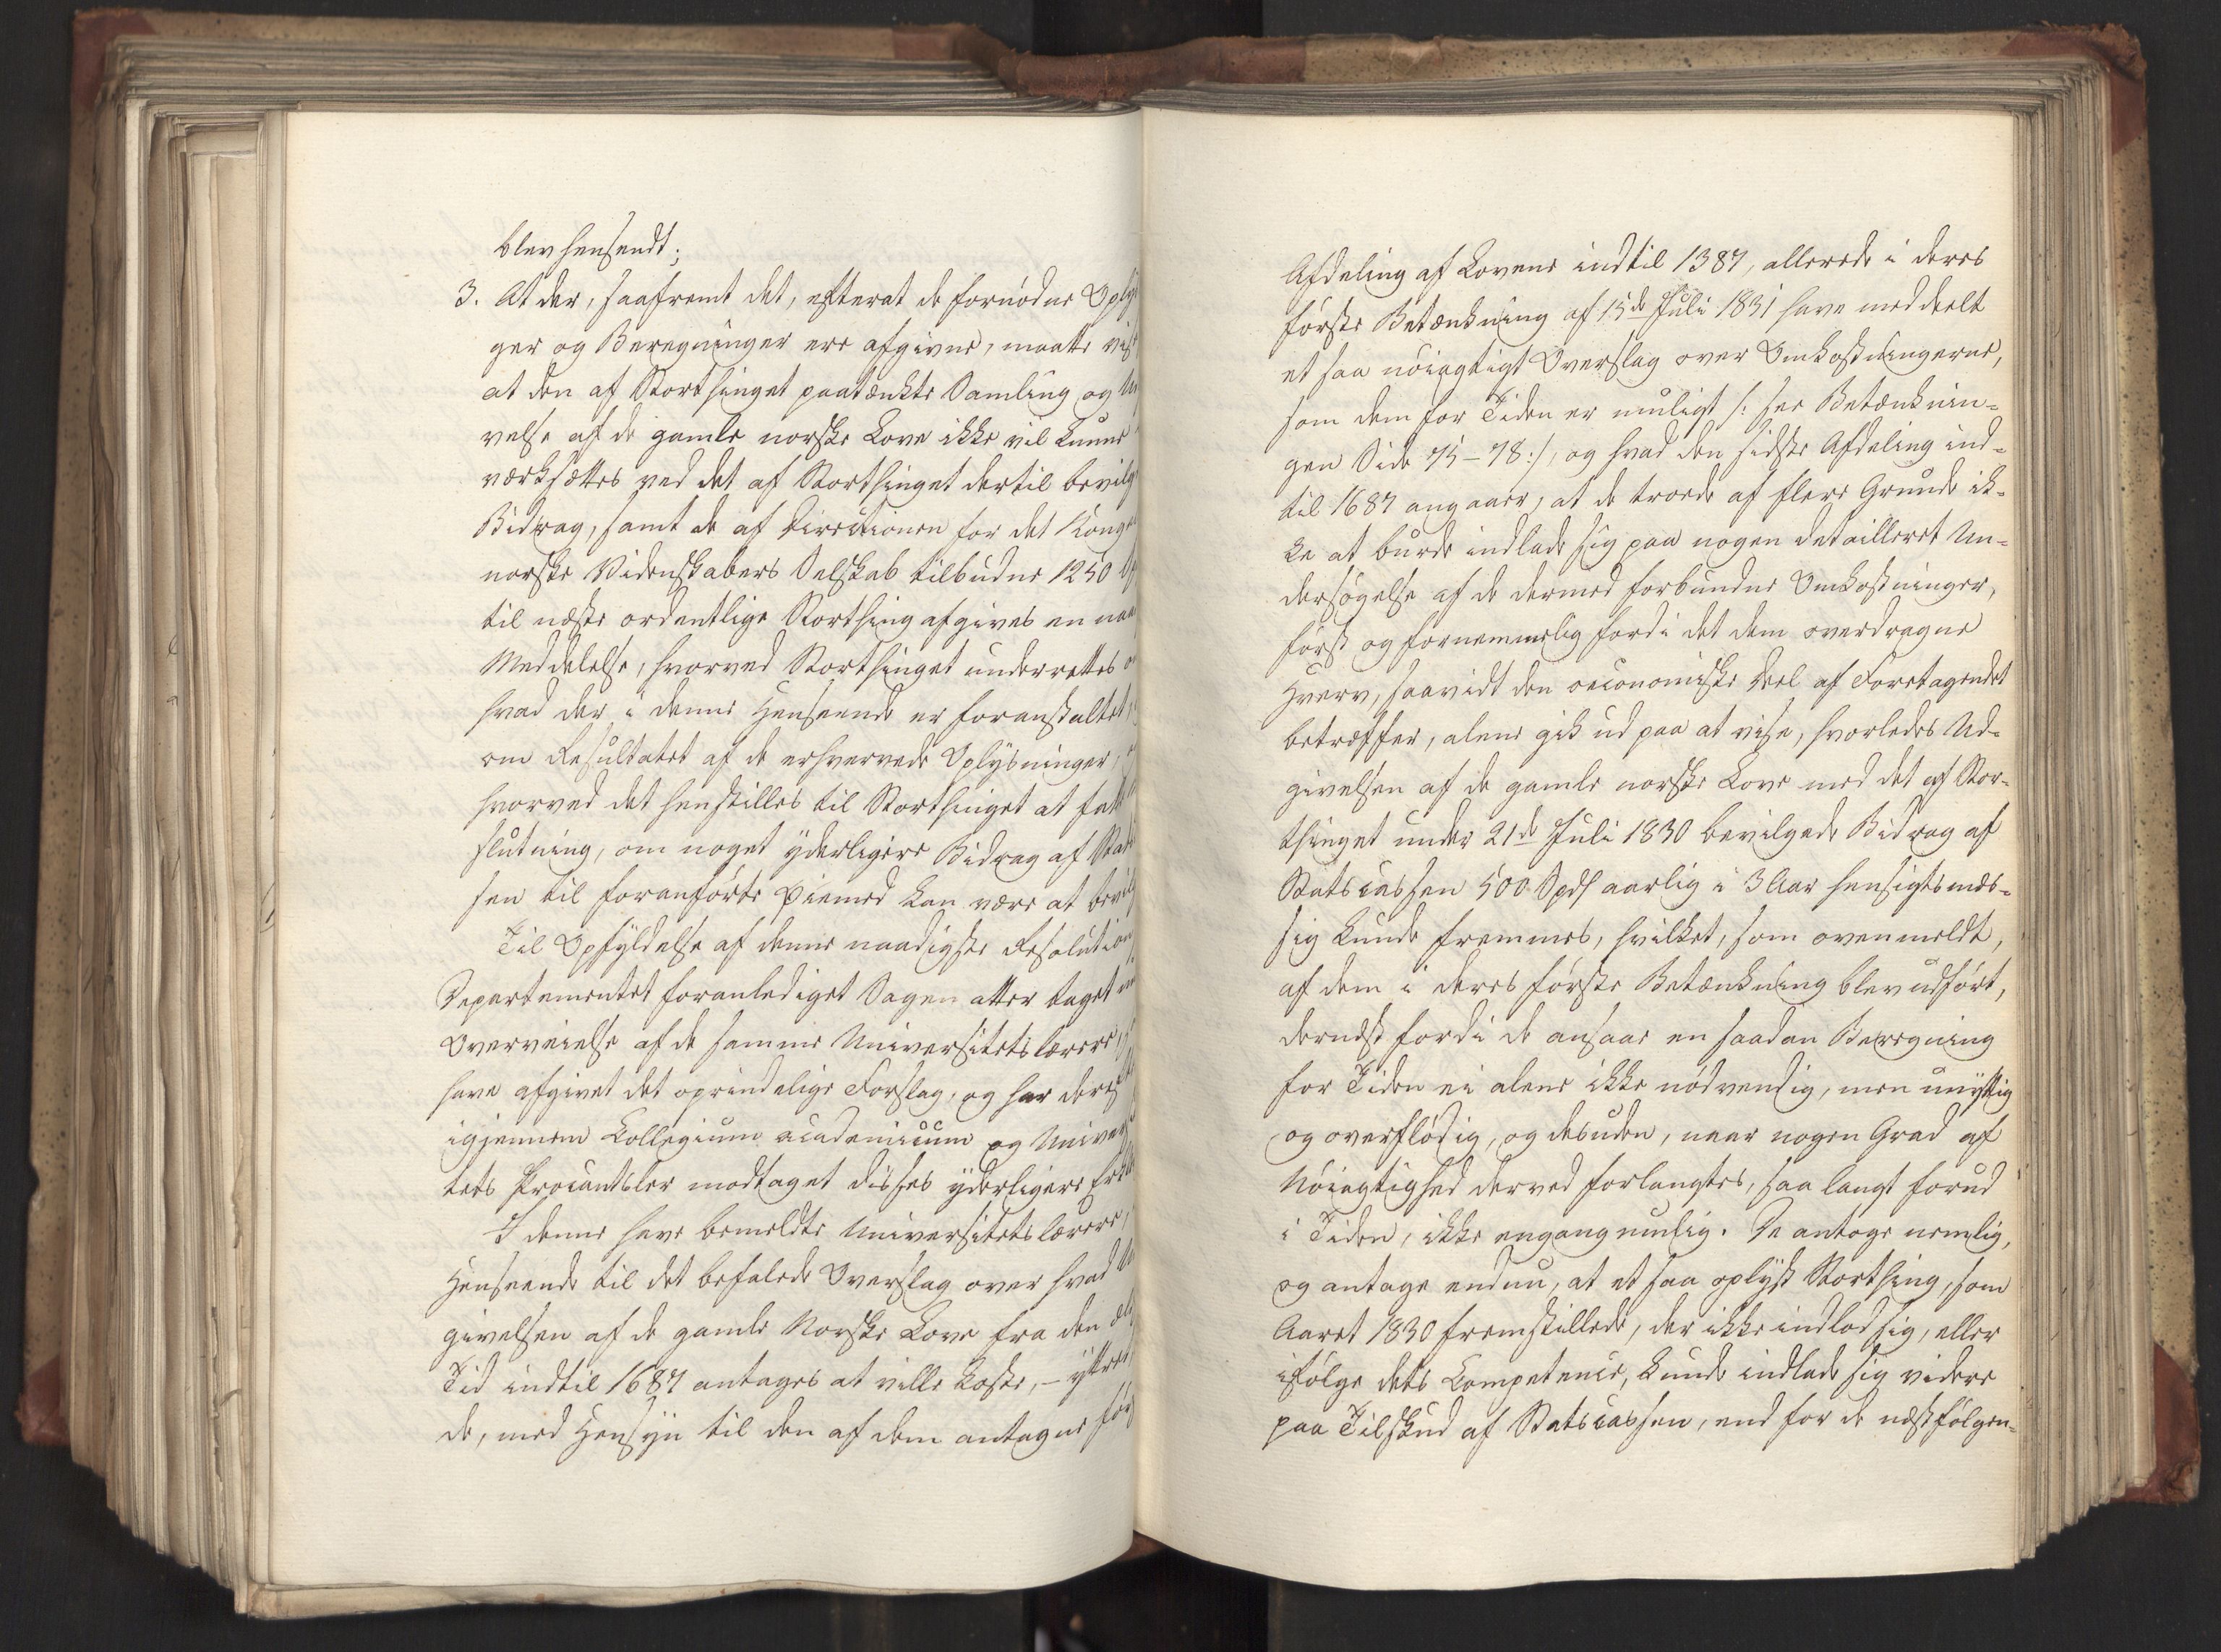 blev hensendt;
3. At der, saafremt det, efterat de fornödne Oplys
ger og Beregninger ere afgivne, maatte vise
at den af Storthinget paatænkte Samling og Ud
velse af de gamle norske Love ikke vil kunne
værksættes ved det af Storthinget dertil bevilg
Bidrag, samt de af Directionen for det Konge
norske Videnskabers Selskab tilbudne 1250 Sp
til næste ordentlige Storthing afgives en naa
Meddelelse, hvorved Storthinget underrettes o
hvad der i denne Henseende er foranstaltet,
om Resultatet af de erhvervede Oplysninger,
hvorved det henstilles til Storthinget at fatte
slutning, om noget yderligere Bidrag af Stats
sen til foranförte Øiemed kan være at bevilg
Til Opfyldelse af denne naadigste Resolution
Departementet foranlediget Sagen atter taget
Overveielse af de samme Universitetslærere,
have afgivet det oprindelige Forslag, og har der
igjennem Collegium academicum og Univer
tets Procantsler modtaget disses yderligere Erkl
I denne have bemeldte Universitetslærere,
Henseende til det befalede Overslag over hvad
givelsen af de gamle Norske Love fra den æl
Tid indtil 1687 antages at ville koste, - yttret,
de, med Hensyn til den af dem antagne förs
Afdeling af Lovene indtil 1387, allerede i deres
förste Betænkning af 15de Juli 1831 have meddeelt
et saa nöiagtigt Overslag over Omkostningerne,
som dem for Tiden er muligt /: see Betænknin=
gen Side 75-78:/, og hvad den sidste Afdeling ind=
til 1687 angaaer, at de troede af flere Grunde ik=
ke at burde indlade sig paa nogen detailleret Un=
dersögelse af de dermed forbundne Omkostninger,
först og fornemmelig fordi det dem overdragne
Hverv, saavidt den oeconomiske Deel af Foretagendet
betræffer, alene gik ud paa at vise, hvorledes Ud=
givelsen af de gamle norske Love med det af Stor=
thinget under 21de Juli 1830 bevilgede Bidrag af
Statscassen 500 Spd aarlig i 3 Aar hensigtsmæs=
sig kunde fremmes, hvilket, som ovenmeldt,
af dem i deres förste Betænkning blev udfört,
dernæst fordi de ansaae en saadan Beregning
for Tiden ei alene ikke nödvendig, men unyttig
og overflödig, og desuden, naar nogen Grad af
Nöiagtighed derved forlangtes, saa langt forud
i Tiden, ikke engang mulig. De antoge nemlig,
og antage endnu, at et saa oplyst Storthing, som
Aaret 1830 fremstillede, der ikke indlod sig, eller
ifölge dets Competence, kunde indlade sig videre
paa Tilskud af Statscassen, end for de næstfölgen=